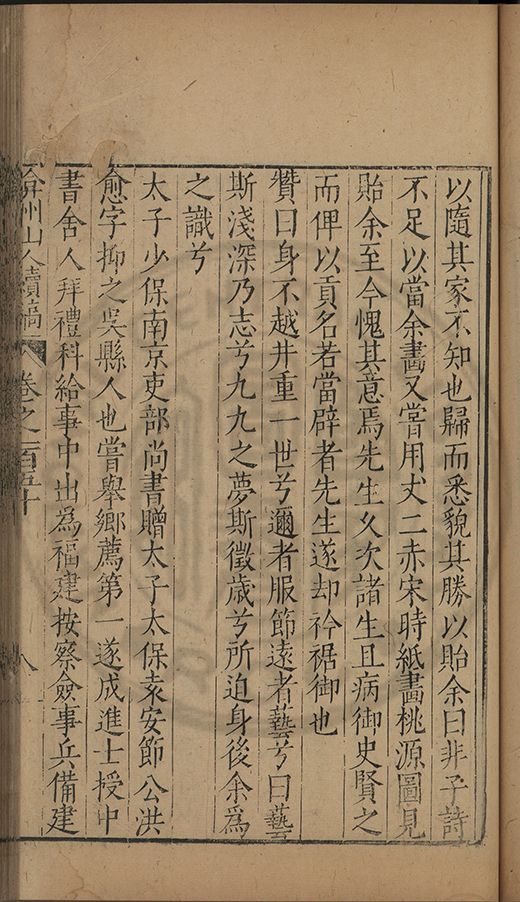 以隨其家不知也歸而悉貌其勝以貽余曰非子詩
不足以當余畫又嘗用丈二赤宋時紙畫桃源圖見
貽余至今愧其意焉先生久次諸生且病御史賢之
而俾以貢名若當辟者先生遂却衿裾御也
贊曰身不越井重一世兮邇者服節遠者藝兮曰藝
斯淺深乃志兮九九之夢斯徵歲兮所迫身後余爲
之識兮
太子少保南京吏部尚書贈太子太保袁安節公洪
愈字抑之吳縣人也嘗舉鄉薦第一遂成進士授中
書舍人拜禮科給事中出為福建按察僉事兵備建
弇州山人續稿 卷之一百五十 八